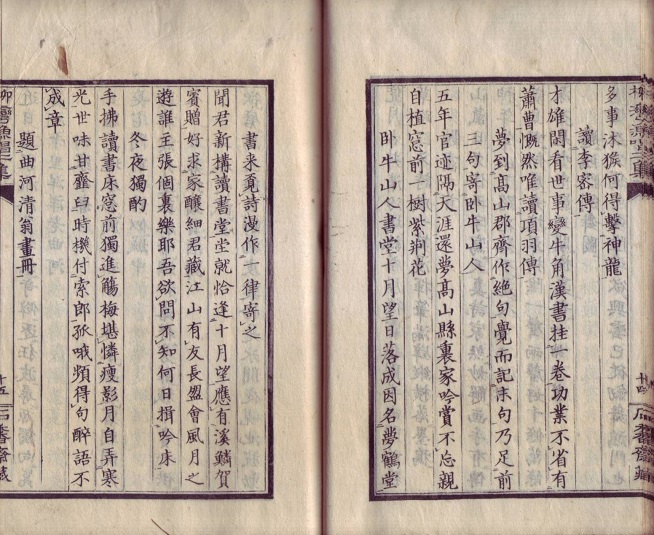 多事沐猴何得擊神龍
讀李密傳
才雄閑看世事變牛角漢書挂一卷功業不省有
蕭曹慨然唯讀項羽傳
夢到髙山郡齋作絶句覺而記末句乃足前
三句寄卧牛山人
五年官迹隔天涯還夢髙山縣裏家吟賞不忘親
自植窓前一樹紫荊花
卧牛山人書堂十月望日落成因名夢鶴堂
十四
石番齋藏
書来覔詩漫作一律寄之
聞君新構讀書堂堂就恰逢十月望應有溪鱗賀
賓贈好求家釀細君藏江山有友長盟會風月之
遊誰主張個裏樂耶吾欲問不知何日揖吟床
冬夜獨酌
手拂讀書床窓前獨進觴梅堪憐瘦影月自弄寒
光世味甘虀臼時機付索郎孤哦頻得句醉語不
成章
題曲河清翁畫冊
柳灣漁唱二集
十五
石番齋藏